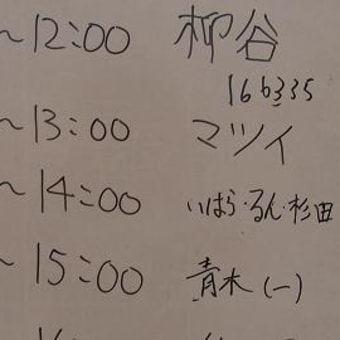 ~12:00 柳谷
166335
~13:00 マツイ
~14:00 いはら・るん・杉田
~15:00 青木(一)